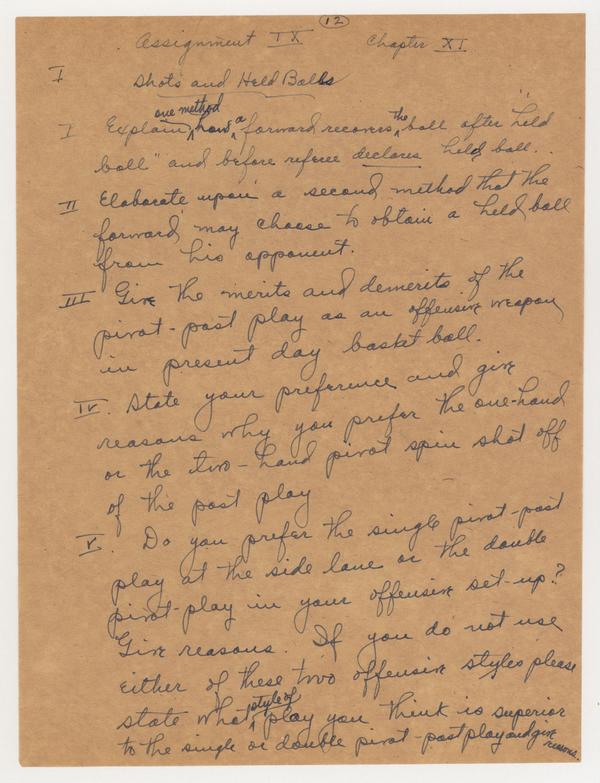 12
Assignment IX Chapter XI
I Shots and Held Balls
one method
I Explain how a forward recovers the ball after "held
ball" and before referee declares held ball.
II Elaborate upon a second method that the
forward may choose to obtain a held ball
from his opponent.
III Give the merits and demerits of the
pivot-post play as an offensive weapon
in present day basket ball.
IV. State your preference and give
reasons why you prefer the one-hand
or the two-hand pivot spin shot off
of the post play
V. Do you prefer the single pivot-post
play at the side lane or the double
pivot-play in your offensive set-up?
Give reasons. If you do not use
either of these two offensive styles please
state what style of play you think is superior
to the single or double pivot-post play and give
reasons.